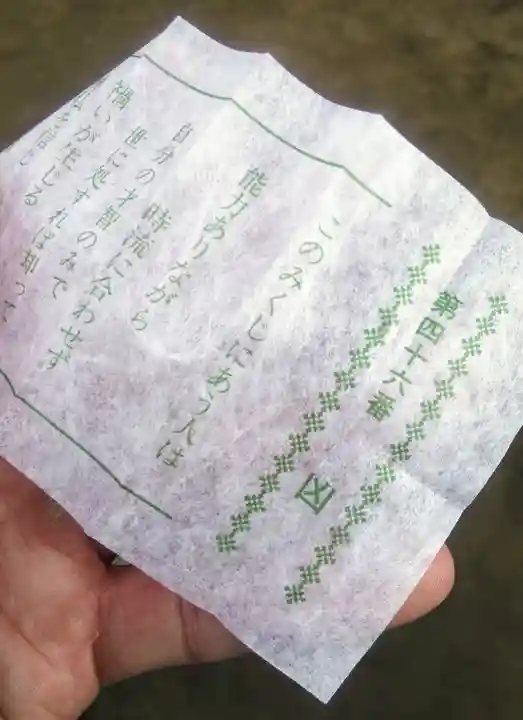 第四十六番 凶
このみくじにあう人は
能力ありながら
時流に合わせず
自分の才智のみで
世に処すれば却って
禍いが生じる
を信じ